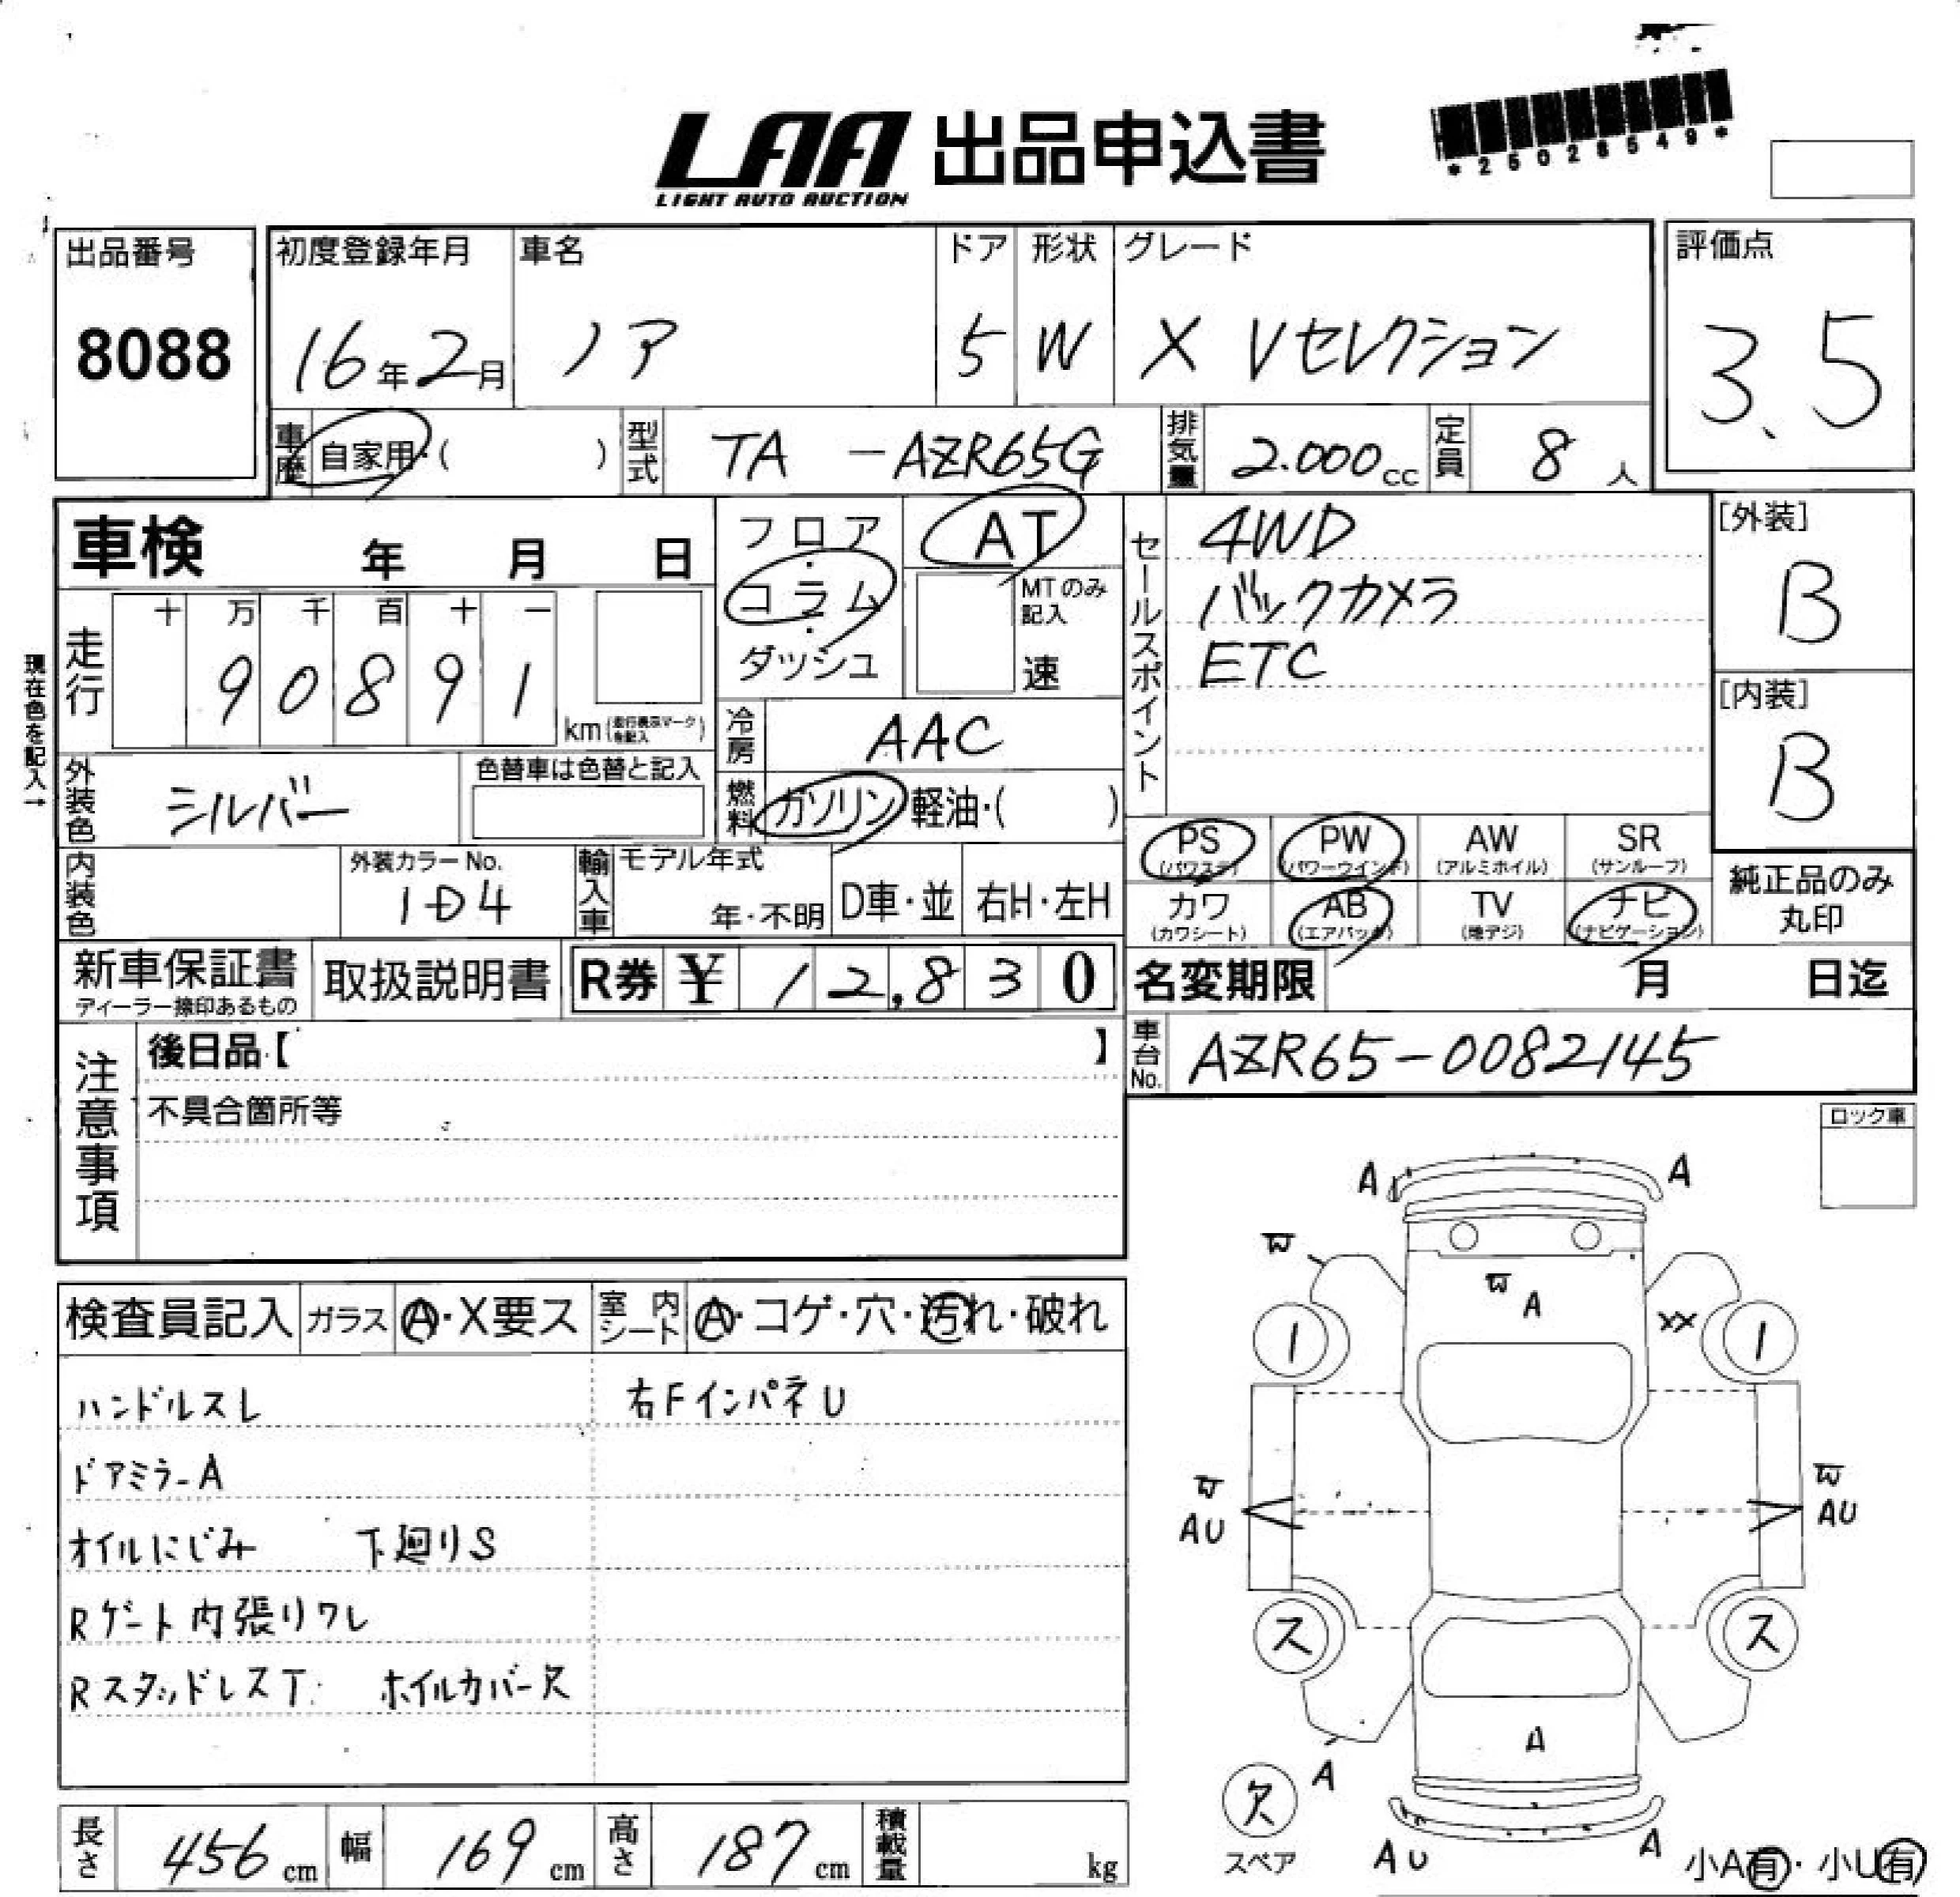 LAA 出品申込書
LIGHT AUTO AUCTION
*25028549*
出品番号
8088
初度登録年月
16年2月
車名
ノア
ドア
5
形状
W
グレード
X Vセレクション
評価点
3.5
車歴
自家用・( )
型式
TA -AZR65G
排気量
2.000cc
定員
8人
車検 年 月 日
フロア・コラム・ダッシュ
AT
MTのみ記入
速
セールスポイント
4WD
バックカメラ
ETC
[外装]
B
[内装]
B
現在色を記入→
走行
十 万 千 百 十 一
9 0 8 9 1
km(走行表示マークを記入)
冷房
AAC
燃料
ガソリン・軽油・( )
外装色
シルバー
色替車は色替と記入
内装色
外装カラーNo.
1D4
輸入車
モデル年式
年・不明
D車・並
右H・左H
PS
(パワステ)
PW
(パワーウインド)
AW
(アルミホイル)
SR
(サンルーフ)
カワ
(カワシート)
AB
(エアバック)
TV
(地デジ)
ナビ
(ナビゲーション)
純正品のみ丸印
新車保証書
ディーラー捺印あるもの
取扱説明書
R券 ¥ 12,830
名変期限 月 日迄
車台No.
AZR65-0082145
注意事項
後日品【 】
不具合箇所等
ロック車
検査員記入
ガラス
A・X要ス
室内シート
A・コゲ・穴・汚れ・破れ
ハンドルスレ
右FインパネU
ドアミラーA
オイルにじみ 下廻りS
Rゲート内張りワレ
RスタッドレスT ホイルカバー欠
A A
W
W A
XX
1 1
W
AU
W
AU
ス ス
A
A
欠
スペア
AU
A
小A有・小U有
長さ
456cm
幅
169cm
高さ
187cm
積載量
kg